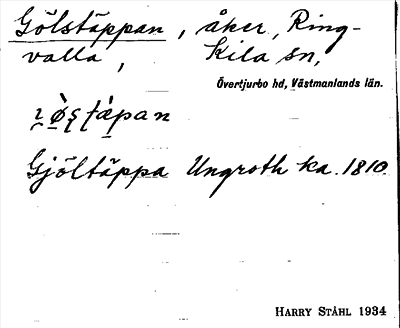 Gölstäppan, åker, Ring-
valla, Kila sn,
Övertjurbo hd, Västmanlands län.
Gjöltäppa Ungroth ka. 1810
HARRY STÅHL 1934